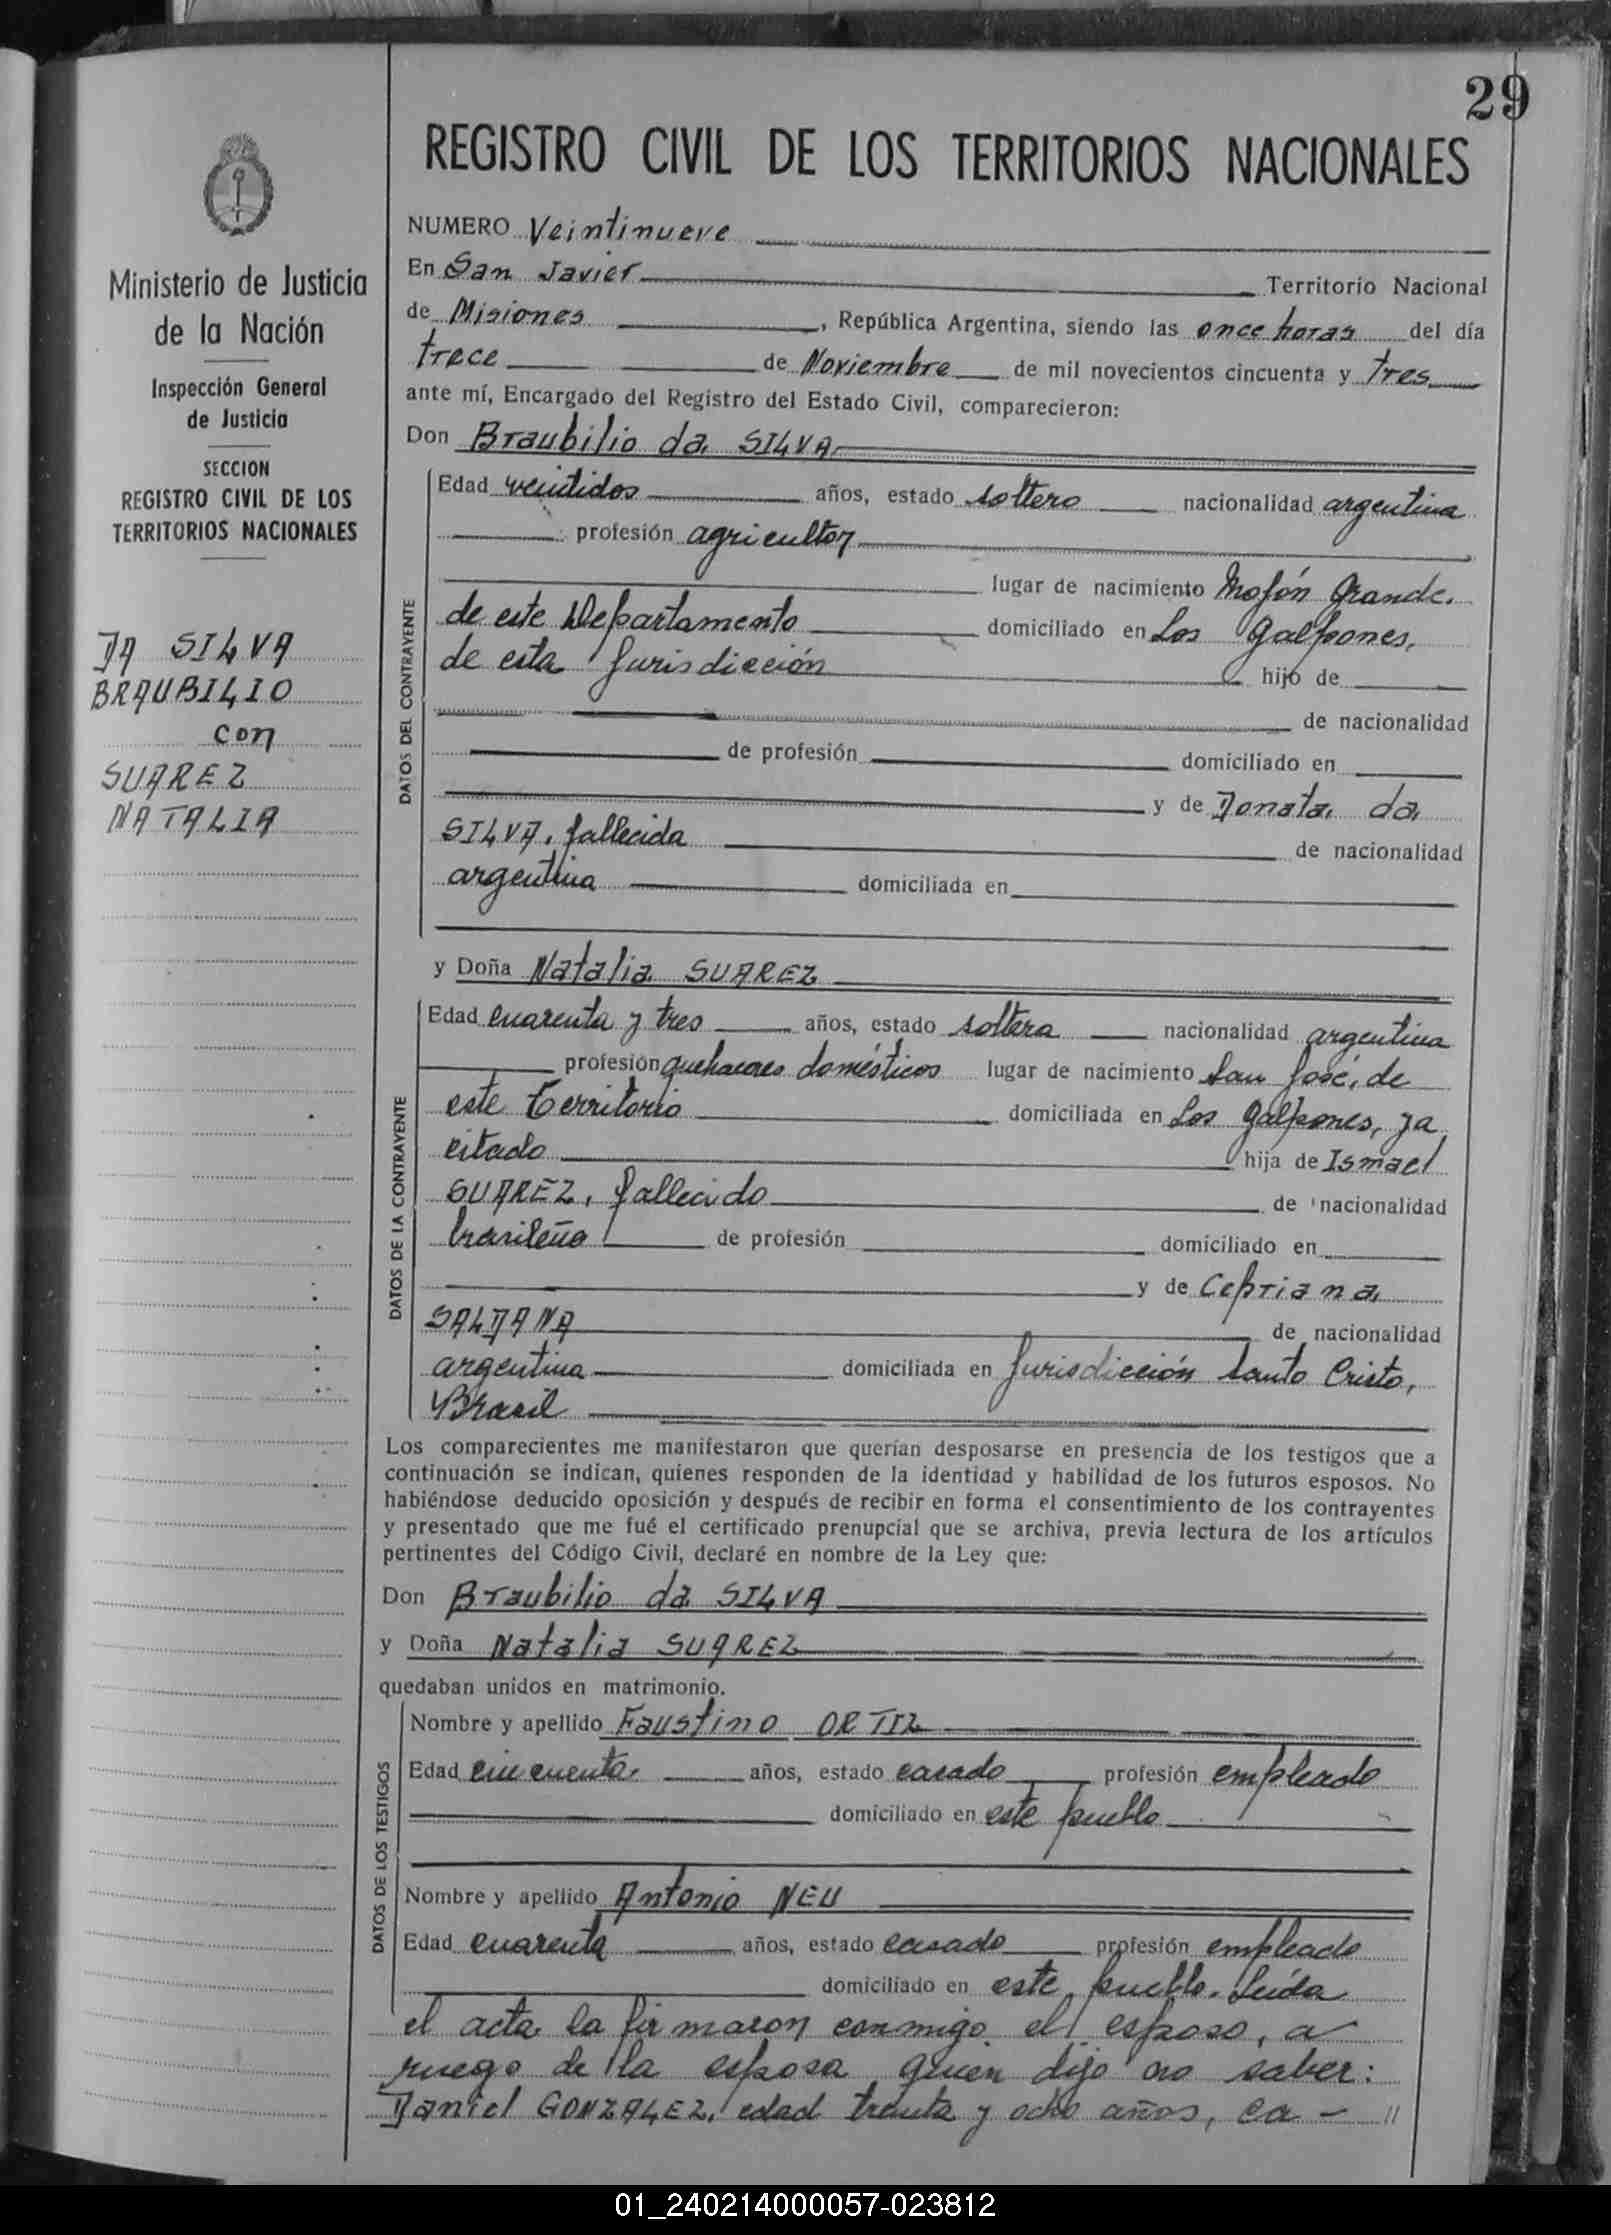 29
REGISTRO CIVIL DE LOS TERRITORIOS NACIONALES
Ministerio de Justicia
de la Nación
Inspección General
de Justicia
SECCION
REGISTRO CIVIL DE LOS
TERRITORIOS NACIONALES
DA SILVA
BRAUBILIO
con
SUAREZ
NATALIA
NUMERO Veintinueve
En San Javier Territorio Nacional
de Misiones, República Argentina, siendo las once horas del día
trece de Noviembre de mil novecientos cincuenta y tres
ante mí, Encargado del Registro del Estado Civil, comparecieron:
Don Braubilio da SILVA
DATOS DEL CONTRAYENTE
Edad veintidos años, estado soltero nacionalidad argentina
profesión agricultor
lugar de nacimiento Mojón Grande,
de este Departamento domiciliado en Los Galpones,
de esta Jurisdicción hijo de
de nacionalidad
de profesión domiciliado en
y de Donata da
SILVA, fallecida de nacionalidad
argentina domiciliada en
y Doña Natalia SUAREZ
DATOS DE LA CONTRAYENTE
Edad cuarenta y tres años, estado soltera nacionalidad argentina
profesión quehaceres domésticos lugar de nacimiento San José, de
este Territorio domiciliada en Los Galpones, ya
citado hija de Ismael
SUAREZ, fallecido de nacionalidad
brasileña de profesión domiciliado en
y de Cepriana
SALDANA de nacionalidad
argentina domiciliada en Jurisdicción Santo Cristo,
Brasil
Los comparecientes me manifestaron que querían desposarse en presencia de los testigos que a
continuación se indican, quienes responden de la identidad y habilidad de los futuros esposos. No
habiéndose deducido oposición y después de recibir en forma el consentimiento de los contrayentes
y presentado que me fué el certificado prenupcial que se archiva, previa lectura de los artículos
pertinentes del Código Civil, declaré en nombre de la Ley que:
Don Braubilio da SILVA
y Doña Natalia SUAREZ
quedaban unidos en matrimonio.
DATOS DE LOS TESTIGOS
Nombre y apellido Faustino ORTIZ
Edad cincuenta años, estado casado profesión empleado
domiciliado en este pueblo
Nombre y apellido Antonio NEU
Edad cuarenta años, estado casado profesión empleado
domiciliado en este pueblo. Leída
el acta la firmaron conmigo el esposo, a
ruego de la esposa quien dijo no saber:
Daniel GONZALEZ, edad treinta y ocho años, ca- //
01_240214000057-023812